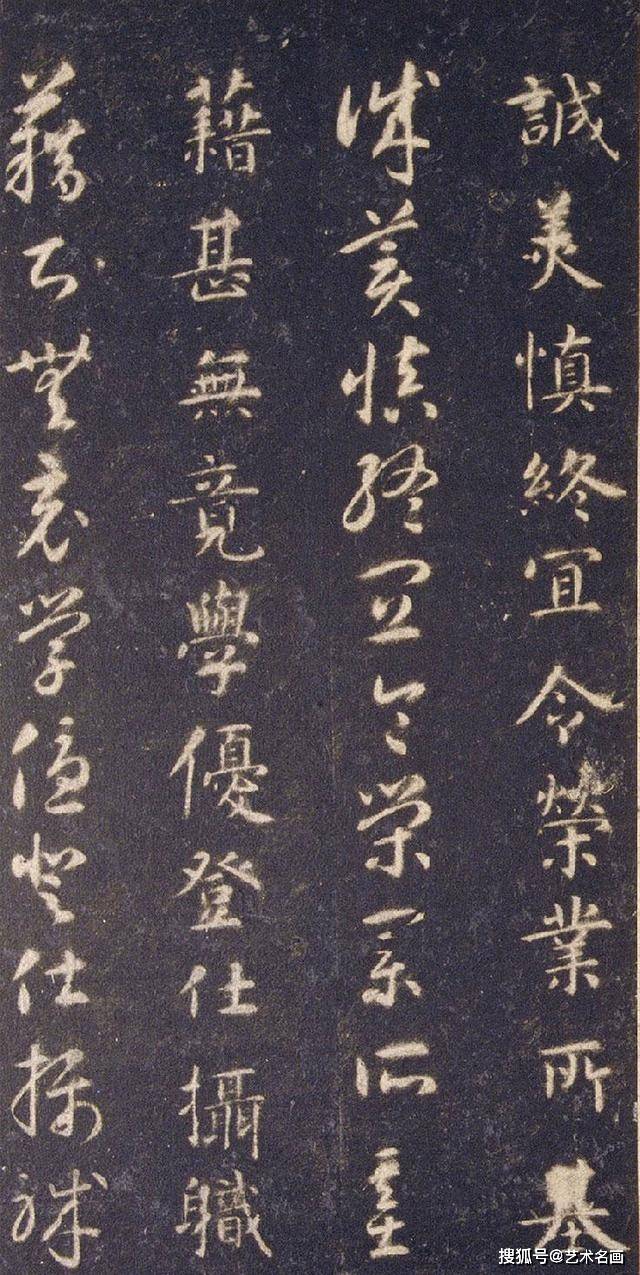 誠美慎終宜令榮業所基
誠美慎終宜令榮業所基
藉甚無竟學優登仕攝職
藉甚無竟學優登仕攝職
搜狐号@艺术名画